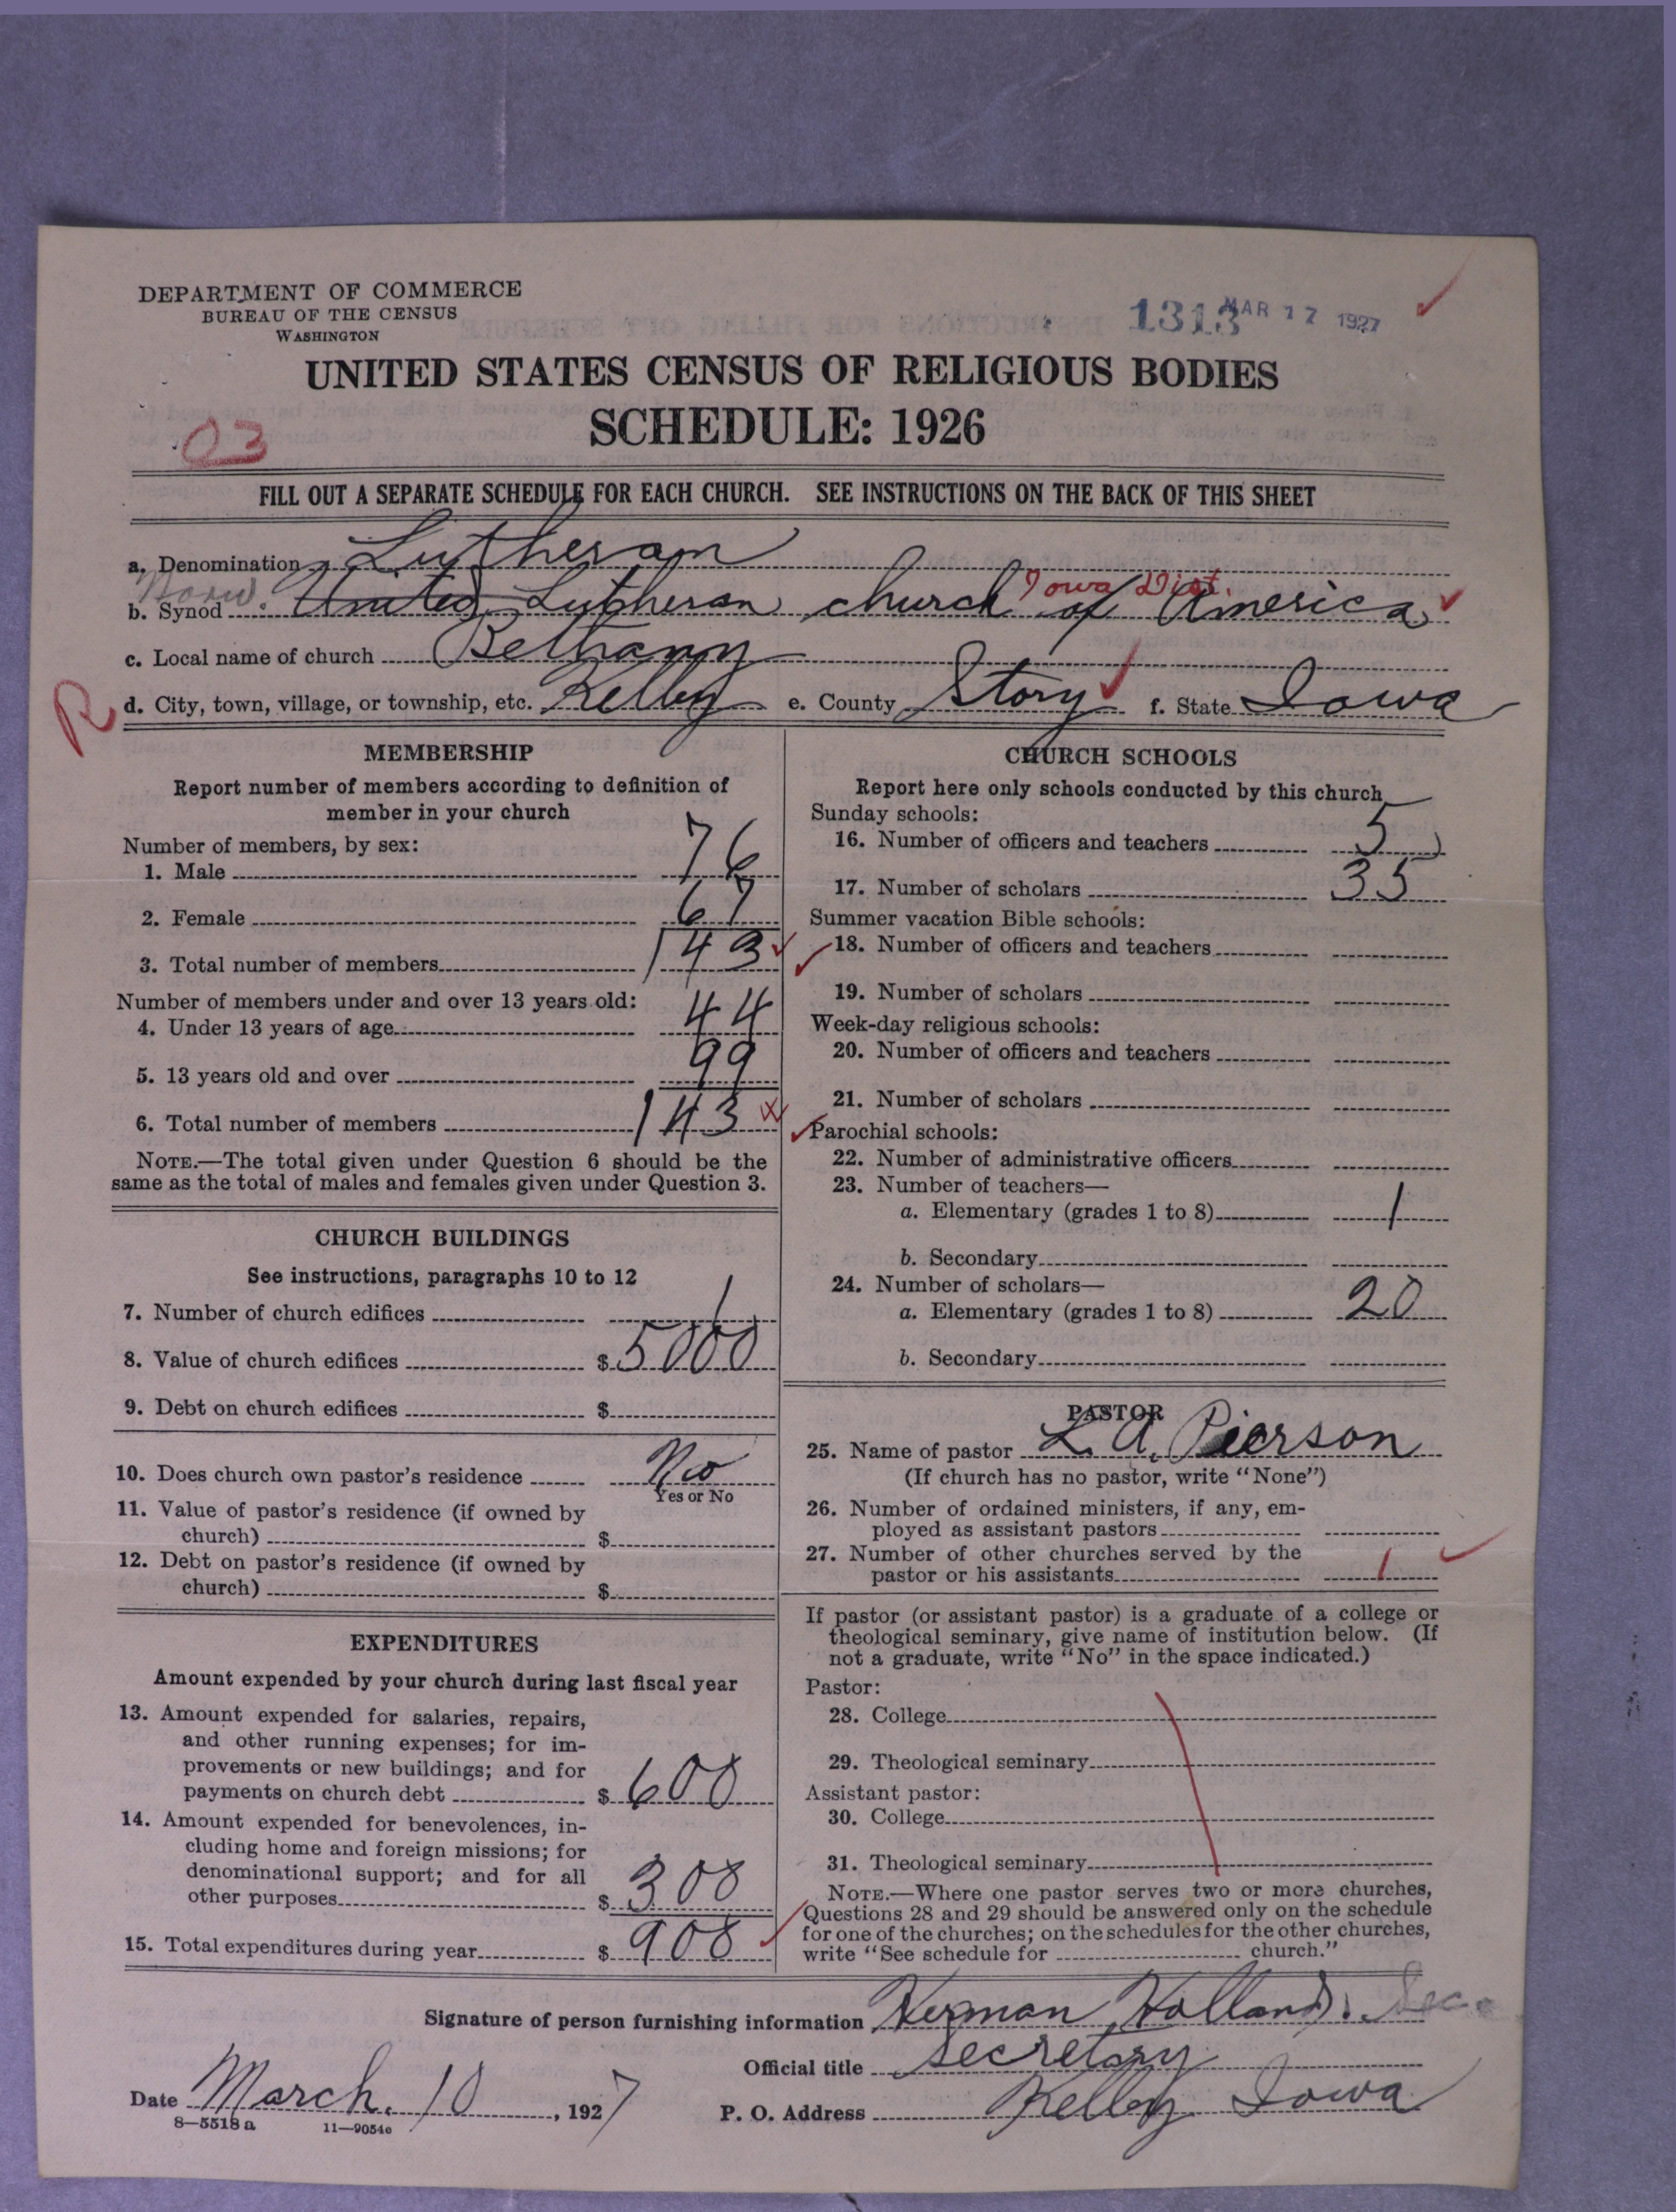 DEPARTMENT OF COMMERCE
BUREAU OF THE CENSUS
WASHINGTON
1313 MAR 17 1927
UNITED STATES CENSUS OF RELIGIOUS BODIES
SCHEDULE: 1926
03
FILL OUT A SEPARATE SCHEDULE FOR EACH CHURCH. SEE INSTRUCTIONS ON THE BACK OF THIS SHEET
a. Denomination Lutheran
Iowa Dist.
b. Synod United Lutheran church of America
c. Local name of church Bethany
R
d. City, town, village, or township, etc. Kelley e. County Story f. State Iowa
MEMBERSHIP
Report number of members according to definition of
member in your church
Number of members, by sex:
1. Male 76
2. Female 67
3. Total number of members 143
Number of members under and over 13 years old:
4. Under 13 years of age 44
5. 13 years old and over 99
6. Total number of members 143
NOTE.—The total given under Question 6 should be the
same as the total of males and females given under Question 3.
CHURCH BUILDINGS
See instructions, paragraphs 10 to 12
7. Number of church edifices 1
8. Value of church edifices $ 5000
9. Debt on church edifices $
10. Does church own pastor's residence No
Yes or No
11. Value of pastor's residence (if owned by
church) $
12. Debt on pastor's residence (if owned by
church) $
EXPENDITURES
Amount expended by your church during last fiscal year
13. Amount expended for salaries, repairs,
and other running expenses; for im-
provements or new buildings; and for
payments on church debt $ 600
14. Amount expended for benevolences, in-
cluding home and foreign missions; for
denominational support; and for all
other purposes $ 308
15. Total expenditures during year $ 908
CHURCH SCHOOLS
Report here only schools conducted by this church
Sunday schools:
16. Number of officers and teachers 5
17. Number of scholars 35
Summer vacation Bible schools:
18. Number of officers and teachers
19. Number of scholars
Week-day religious schools:
20. Number of officers and teachers
21. Number of scholars
Parochial schools:
22. Number of administrative officers
23. Number of teachers—
a. Elementary (grades 1 to 8) 1
b. Secondary
24. Number of scholars—
a. Elementary (grades 1 to 8) 20
b. Secondary
PASTOR
25. Name of pastor L. A. Pierson
(If church has no pastor, write "None")
26. Number of ordained ministers, if any, em-
ployed as assistant pastors
27. Number of other churches served by the
pastor or his assistants 1
If pastor (or assistant pastor) is a graduate of a college or
theological seminary, give name of institution below. (If
not a graduate, write "No" in the space indicated.)
Pastor:
28. College
29. Theological seminary
Assistant pastor:
30. College
31. Theological seminary
NOTE.—Where one pastor serves two or more churches,
Questions 28 and 29 should be answered only on the schedule
for one of the churches; on the schedules for the other churches,
write "See schedule for church."
Signature of person furnishing information Herman Holland. Sec.
Official title secretary
Date March. 10, 1927 P. O. Address Kelley Iowa
8—5518 a 11—9054c